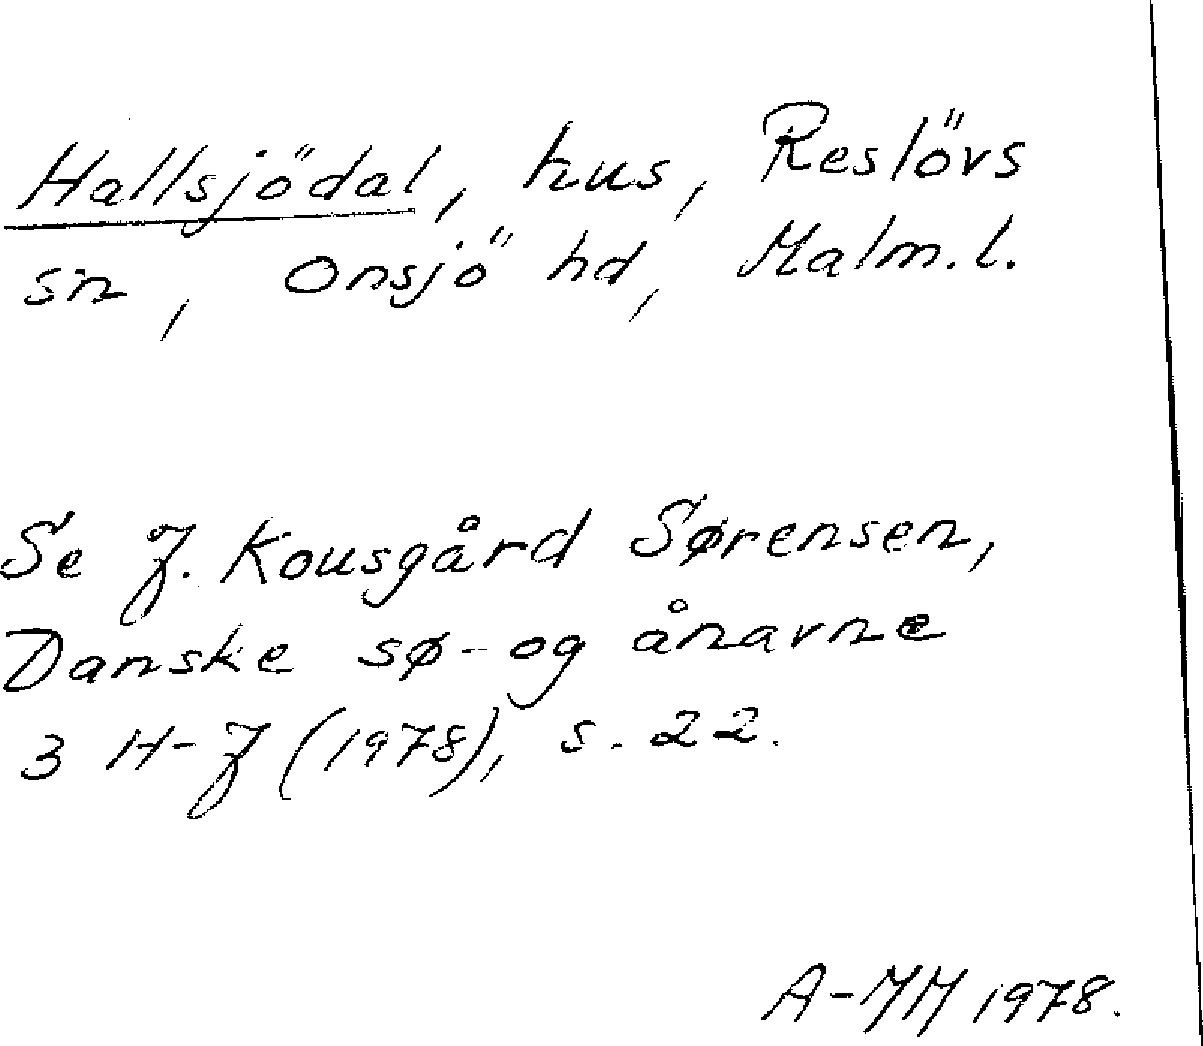 Hallsjödal, hus, Reslövs
sn, Onsjö hd, Malm.l.
Se J. Kousgård Sørensen,
Danske sø- og ånavne
3 H-J (1978), s. 22.
A-MM 1978.